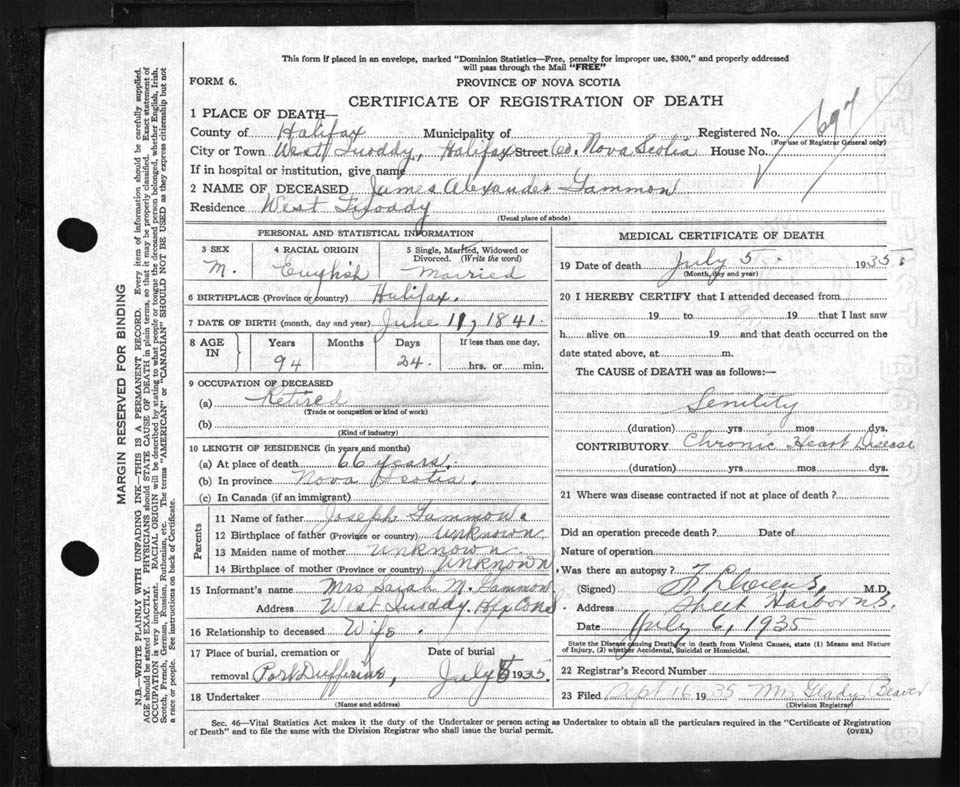 This form if placed in an envelope, marked "Dominion Statistics—Free, penalty for improper use, $300," and properly addressed
will pass through the Mail "FREE"
FORM 6.
PROVINCE OF NOVA SCOTIA
CERTIFICATE OF REGISTRATION OF DEATH
1 PLACE OF DEATH—
County of Halifax Municipality of Registered No. 697
(For use of Registrar General only)
City or Town West Quoddy, Halifax Street Co. Nova Scotia House No.
If in hospital or institution, give name
2 NAME OF DECEASED James Alexander Gammon
Residence West Quoddy
(Usual place of abode)
PERSONAL AND STATISTICAL INFORMATION
3 SEX 4 RACIAL ORIGIN 5 Single, Married, Widowed or Divorced. (Write the word)
M. English Married
6 BIRTHPLACE (Province or country) Halifax.
7 DATE OF BIRTH (month, day and year) June 11, 1841.
8 AGE IN Years Months Days If less than one day,
94 24. hrs. or min.
9 OCCUPATION OF DECEASED
(a) Retired
(Trade or occupation or kind of work)
(b)
(Kind of industry)
10 LENGTH OF RESIDENCE (in years and months)
(a) At place of death 66 years.
(b) In province Nova Scotia.
(c) In Canada (if an immigrant)
Parents
11 Name of father Joseph Gammon.
12 Birthplace of father (Province or country) Unknown
13 Maiden name of mother Unknown
14 Birthplace of mother (Province or country) Unknown
15 Informant's name Mrs Sarah M. Gammon
Address West Quoddy. Hfx Co NS.
16 Relationship to deceased Wife.
17 Place of burial, cremation or removal Date of burial
Port Dufferin, July 1935.
18 Undertaker
(Name and address)
MEDICAL CERTIFICATE OF DEATH
19 Date of death July 5. 1935.
(Month, day and year)
20 I HEREBY CERTIFY that I attended deceased from
19 to 19 that I last saw
h alive on 19 and that death occurred on the
date stated above, at m.
The CAUSE of DEATH was as follows:—
Senility
(duration) yrs mos dys.
CONTRIBUTORY Chronic Heart Disease
(duration) yrs mos dys.
21 Where was disease contracted if not at place of death?
Did an operation precede death? Date of
Nature of operation
Was there an autopsy?
(Signed) M.D.
Address Sheet Harbor N.S.
Date July 6, 1935
State the Disease causing Death, or in death from Violent Causes, state (1) Means and Nature
of Injury, (2) whether Accidental, Suicidal or Homicidal.
22 Registrar's Record Number
23 Filed Sept 16 1935 Mrs Gladys Beaver
(Division Registrar)
Sec. 46—Vital Statistics Act makes it the duty of the Undertaker or person acting as Undertaker to obtain all the particulars required in the "Certificate of Registration
of Death" and to file the same with the Division Registrar who shall issue the burial permit.
(OVER)
MARGIN RESERVED FOR BINDING
N.B.—WRITE PLAINLY WITH UNFADING INK—THIS IS A PERMANENT RECORD. Every item of information should be carefully supplied.
AGE should be stated EXACTLY. PHYSICIANS should STATE CAUSE OF DEATH in plain terms, so that it may be properly classified. Exact statement of
OCCUPATION is very important. RACIAL ORIGIN will be described by stating to what people or tongue the deceased person belonged, whether English, Irish,
Scotch, French, German, Russian, Ruthenian, etc. The terms "AMERICAN" or "CANADIAN" SHOULD NOT BE USED as they express citizenship but not
a race or people. See instructions on back of Certificate.